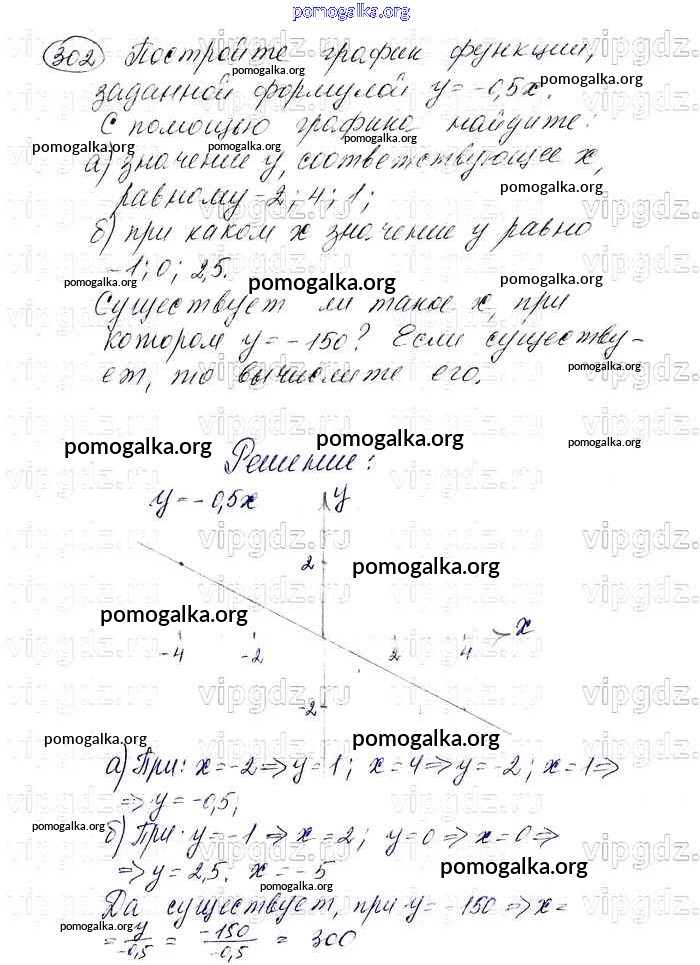 pomogalka.org
302 Постройте график функции,
заданной формулой y = -0,5x.
С помощью графика найдите:
а) значение y, соответствующее x,
равному -2; 4; 1;
б) при каком x значение y равно
-1; 0; 2,5.
Существует ли такое x, при
котором y = -150? Если существу-
ет, то вычислите его.
Решение:
y = -0,5x
y
2
x
-4 -2 2 4
-2
а) При: x = -2 => y = 1; x = 4 => y = -2; x = 1 =>
=> y = -0,5;
б) При y = -1 => x = 2; y = 0 => x = 0 =>
=> y = 2,5. x = -5
Да существует, при y = -150 => x =
= y/-0,5 = -150/-0,5 = 300